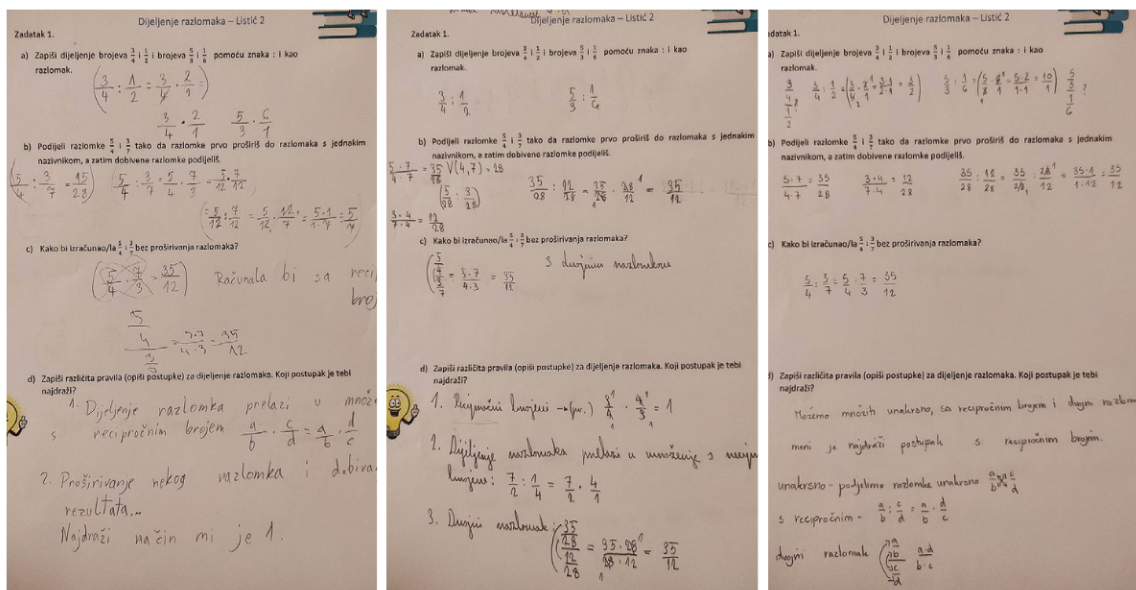 Dijeljenje razlomaka – Listić 2
Zadatak 1.
a) Zapiši dijeljenje brojeva 3/4 i 1/2 i brojeva 5/3 i 1/6 pomoću znaka : i kao
razlomak.
(3/4 : 1/2 = 3/4 · 2/1 =)
3/4 · 2/1 5/3 · 6/1
b) Podijeli razlomke 5/4 i 3/7 tako da razlomke prvo proširiš do razlomaka s jednakim
nazivnikom, a zatim dobivene razlomke podijeliš.
(5/4 : 3/7 = 15/28) (5/4 : 3/7 = 5/4 · 7/3 = 5/12 · 7/12
(= 5/12 : 7/12 = 5/12 · 12/7 = 5·1/1·7 = 5/7)
c) Kako bi izračunao/la 5/4 : 3/7 bez proširivanja razlomaka?
(5/4 · 7/3 = 35/12) Računala bi sa reci
broj
5/4/3/7 = 5·7/4·3 = 35/12
d) Zapiši različita pravila (opiši postupke) za dijeljenje razlomaka. Koji postupak je tebi
najdraži?
1. Dijeljenje razlomka prelazi u množe
s recipročnim brojem a/b · c/d = a/b · d/c
2. Proširivanje nekog razlomka i dobiva
rezultata...
Najdraži način mi je 1.
Dijeljenje razlomaka – Listić 2
Zadatak 1.
a) Zapiši dijeljenje brojeva 3/4 i 1/2 i brojeva 5/3 i 1/6 pomoću znaka : i kao
razlomak.
3/4 : 1/2 5/3 : 1/6
b) Podijeli razlomke 5/4 i 3/7 tako da razlomke prvo proširiš do razlomaka s jednakim
nazivnikom, a zatim dobivene razlomke podijeliš.
5·7/4·7 = 35/28 V(4,7) = 28
(5/28 : 3/28) 35/28 : 12/28 = 35/28 · 28/12 = 35/12
3·4/7·4 = 12/28
c) Kako bi izračunao/la 5/4 : 3/7 bez proširivanja razlomaka?
(5/4/3/7 = 5·7/4·3 = 35/12 S dvojnim razlomkom
d) Zapiši različita pravila (opiši postupke) za dijeljenje razlomaka. Koji postupak je tebi
najdraži?
1. Recipročni brojevi → (pr.) 3/4 · 4/3 = 1
2. Dijeljenje razlomaka prelazi u množenje s recip
brojem: 7/2 : 1/4 = 7/2 · 4/1
3. Dvojni razlomak: (35/28/12/28 = 35·28/28·12 = 35/12
Dijeljenje razlomaka – Listić 2
datak 1.
a) Zapiši dijeljenje brojeva 3/4 i 1/2 i brojeva 5/3 i 1/6 pomoću znaka : i kao
razlomak.
3/4/1/2? 3/4 : 1/2 = (3/4 · 2/1 = 3·1/2·1 = 3/2) 5/3 : 1/6 = (5/3 · 6/1 = 5·2/1·1 = 10/1) 5/3/1/6?
b) Podijeli razlomke 5/4 i 3/7 tako da razlomke prvo proširiš do razlomaka s jednakim
nazivnikom, a zatim dobivene razlomke podijeliš.
5·7/4·7 = 35/28 3·4/7·4 = 12/28 35/28 : 12/28 = 35/28 · 28/12 = 35·1/1·12 = 35/12
c) Kako bi izračunao/la 5/4 : 3/7 bez proširivanja razlomaka?
5/4 : 3/7 = 5/4 · 7/3 = 35/12
d) Zapiši različita pravila (opiši postupke) za dijeljenje razlomaka. Koji postupak je tebi
najdraži?
Možemo množiti unakrsno, sa recipročnim brojem i dvojni razlom
meni je najdraži postupak s recipročnim brojem.
unakrsno - podjelimo razlomke unakrsno a/b c/d
s recipročnim - a/b : c/d = a/b · d/c
dvojni razlomak a/b/c/d a·d/b·c